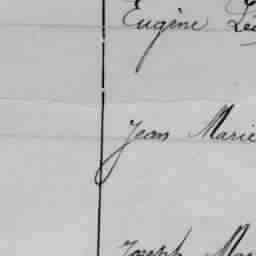 Eugène
Jean Marie
Joseph